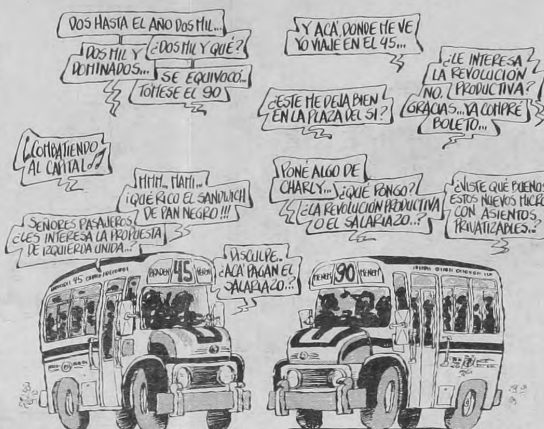 DOS HASTA EL AÑO DOS MIL...
DOS MIL Y
DOMINADOS...
¿DOS MIL Y QUÉ?
SE EQUIVOCÓ...
TÓMESE EL 90
Y ACÁ DONDE ME VE
YO VIAJE EN EL 45...
¿ESTE ME DEJA BIEN
EN LA PLAZA DEL SI?
¿LE INTERESA
LA REVOLUCIÓN
PRODUCTIVA?
NO.
GRACIAS... YA COMPRÉ
BOLETO...
¡COMBATIENDO
AL CAPITAL
MHM... MAMI...
¡QUÉ RICO EL SANDWICH
DE PAN NEGRO!!!
SEÑORES PASAJEROS,
¿LES INTERESA LA PROPUESTA
DE IZQUIERDA UNIDA...?
PONÉ ALGO DE
CHARLY...
¿QUÉ PONGO?
¿LA REVOLUCIÓN PRODUCTIVA
O EL SALARIAZO...?
¿VISTE QUÉ BUENOS
ESTOS NUEVOS MICROS
CON ASIENTOS
PRIVATIZABLES...?
DISCULPE.
¿ACÁ PAGAN EL
SALARIAZO...?
45
MENEM 90 MENEM
45